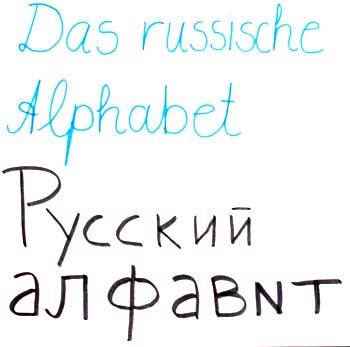 Das russische
Alphabet
Русский
алфавит